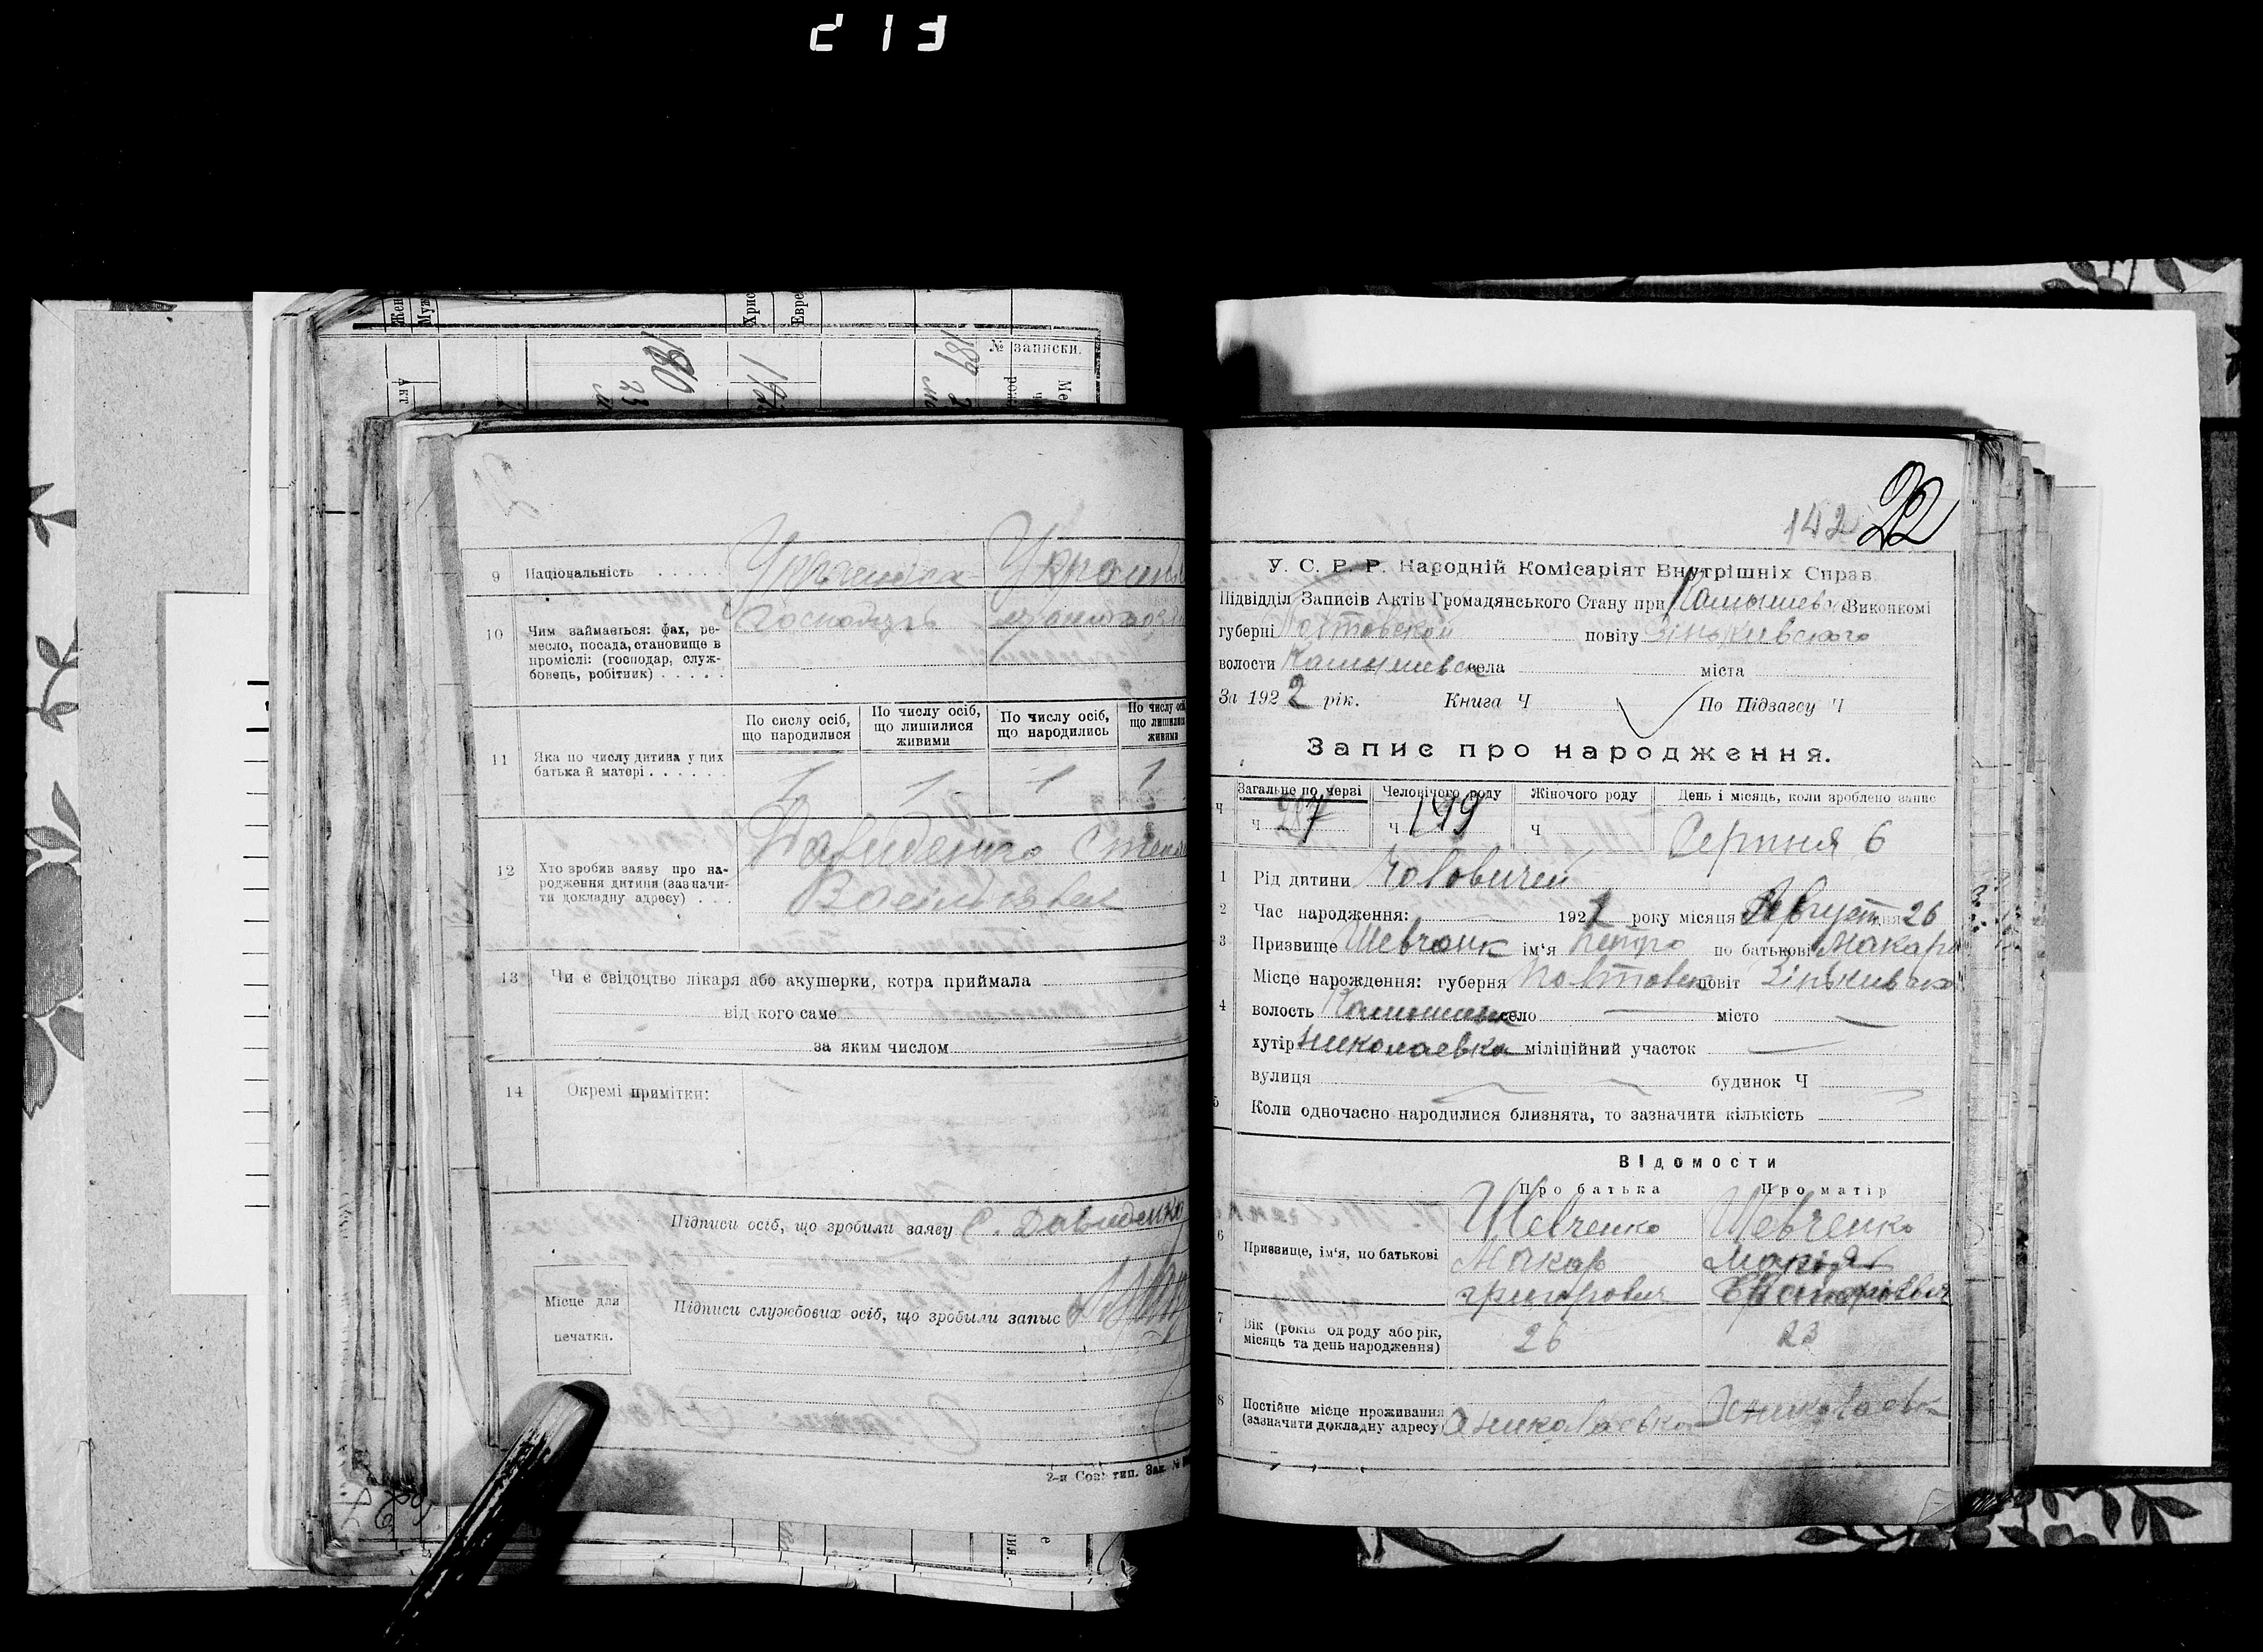 213
Жен
Муж
Хрис
Евре
№ записки.
189
190
Акт
9 Національність
10 Чим займається: фах, ре-
месло, посада, становище в
промислі: (господар, служ-
бовець, робітник)
По сислу осіб,
що народилися
По числу осіб,
що лишилися
живими
По числу осіб,
що народились
По числу осі
що лишилися
живими
11 Яка по числу дитина у цих
батька й матері
1 1 1 1
12 Хто зробив заяву про на-
родження дитини (зазначи-
ти докладну адресу)
Давиденко Степа
13 Чи є свідоцтво лікаря або акушерки, котра приймала
від кого саме
за яким числом
14 Окремі примітки:
Підписи осіб, що зробили заяву С. Давиденко
Місце для
печатки.
Підписи службових осіб, що зробили запис
2-я Сов. тип. Зак. №
142 22
У. С. Р. Р. Народній Комісаріят Внутрішніх Справ.
Підвідділ Записів Актів Громадянського Стану при Виконкомі
губерні Полтовской повіту Зіньkивского
волости села міста
За 1922 рік. Книга Ч По Підзагсу Ч
Запис про народження.
Загальне по черзі Человічого роду Жіночого роду День і місяць, коли зроблено запис
Ч 287 Ч 199 Ч Серпня 6
1 Рід дитини Чоловичей
2 Час народження: 192 року місяця Август дня 26
3 Призвище Шевченк ім'я Петро по батькові Макаро
4 Місце нарождення: губерня повіт
волость село місто
хутір Николаевка міліційний участок
вулиця будинок Ч
5 Коли одночасно народилися близнята, то зазначити кількість
Відомости
Про батька Про матір
6 Призвище, ім'я, по батькові
Шевченко Шевченко
Макар Марія
Григорович
7 Вік (років од роду або рік,
місяць та день народження)
26 23
8 Постійне місце проживання
(зазначити докладну адресу)
Николаевка Николаевк